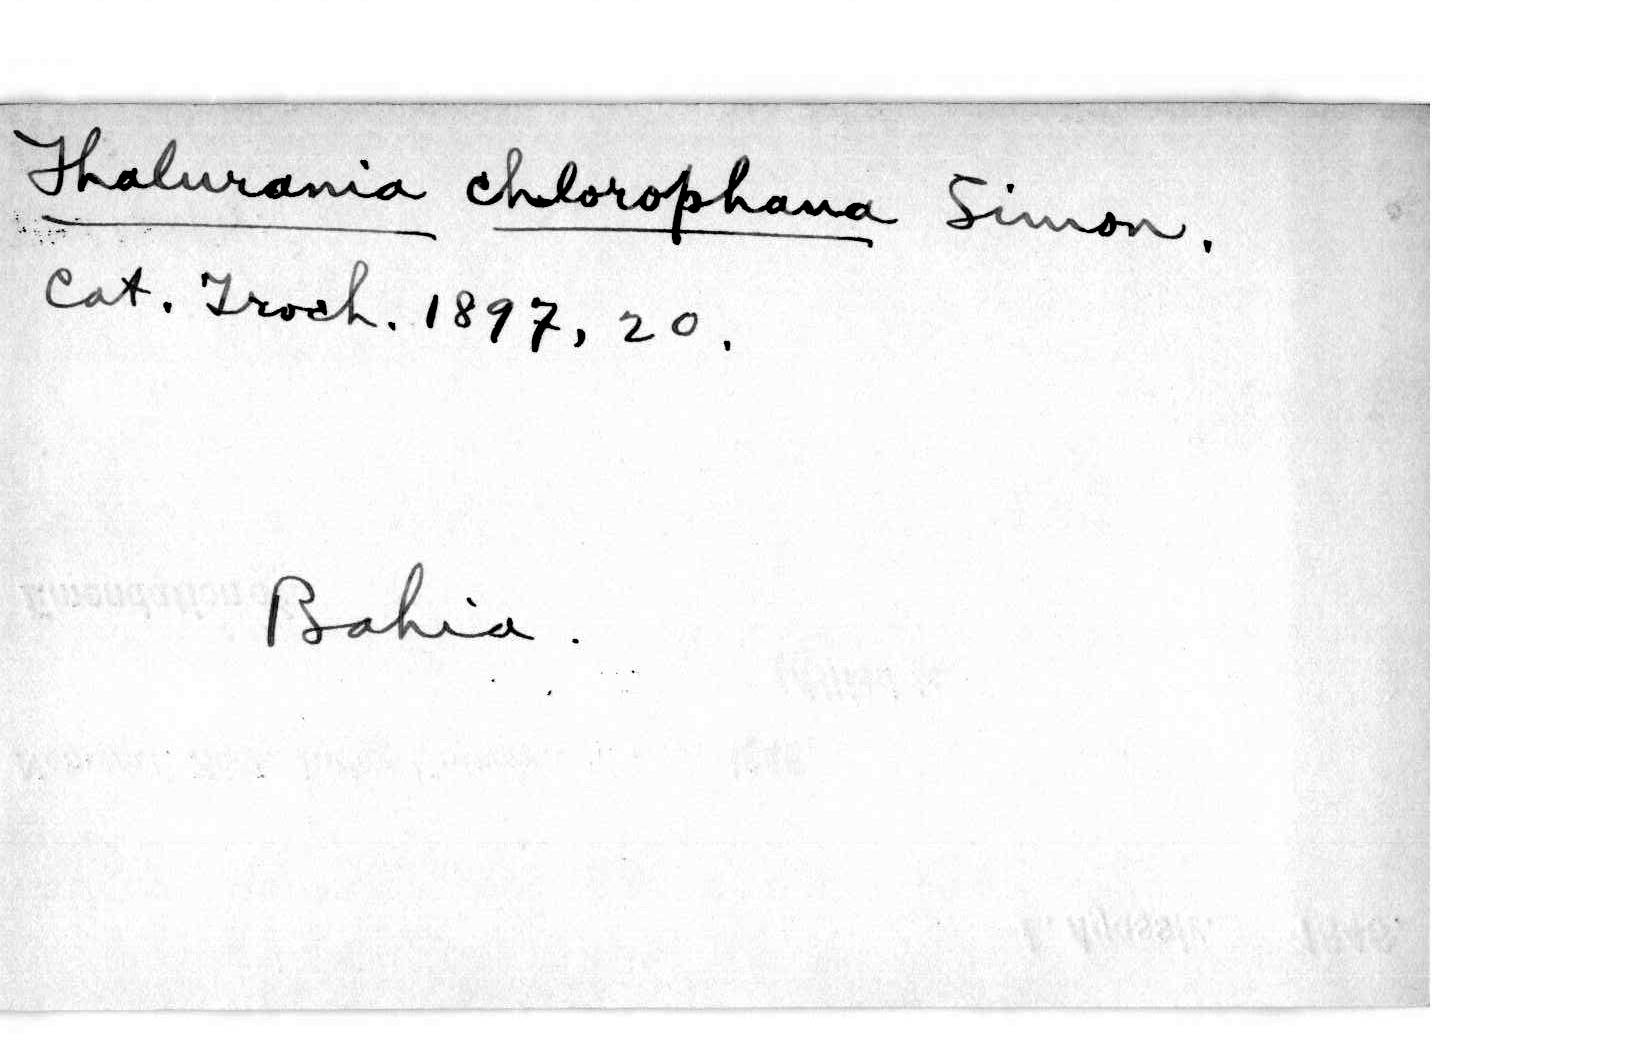 Thalurania chlorophana Simon.
Cat. Troch. 1897, 20.
Bahia.